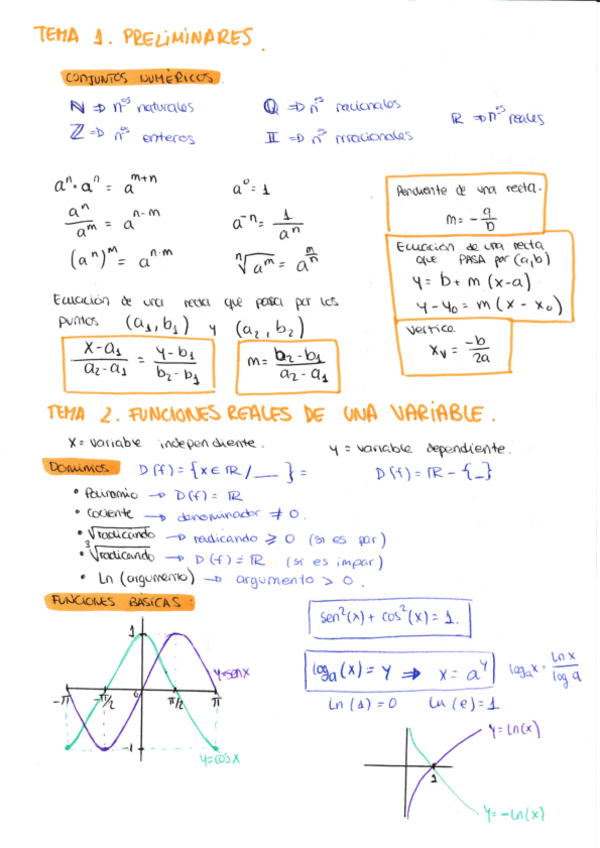 TEMA 1. PRELIMINARES.
CONJUNTOS NUMÉRICOS.
ℕ ⇒ nºs naturales
ℚ ⇒ nºs racionales
ℝ ⇒ nºs reales
ℤ ⇒ nºs enteros
𝕀 ⇒ nºs irracionales
aⁿ · aⁿ = a^(m+n)
a⁰ = 1
aⁿ / aᵐ = a^(n-m)
a⁻ⁿ = 1 / aⁿ
(aⁿ)ᵐ = a^(n·m)
ⁿ√aᵐ = a^(m/n)
Pendiente de una recta.
m = - a/b
Ecuación de una recta
que PASA por (a,b)
y = b + m (x-a)
y - y₀ = m (x - x₀)
Vértice
xᵥ = -b / 2a
Ecuación de una recta que pasa por los
puntos (a₁, b₁) y (a₂, b₂)
x-a₁ / a₂-a₁ = y-b₁ / b₂-b₁
m = b₂-b₁ / a₂-a₁
TEMA 2. FUNCIONES REALES DE UNA VARIABLE.
x = variable independiente.
y = variable dependiente.
DOMINIOS
D(f) = {x ∈ ℝ / __ } =
D(f) = ℝ - {_}
• Polinomio → D(f) = ℝ
• Cociente → denominador ≠ 0.
• √radicando → radicando ≥ 0 (si es par)
• ³√radicando → D(f) = ℝ (si es impar)
• Ln (argumento) → argumento > 0.
FUNCIONES BÁSICAS:
sen²(x) + cos²(x) = 1.
logₐ(x) = y ⇒ x = aʸ
logₐx = Ln x / log a
Ln (1) = 0
Ln (e) = 1
1
y=senx
-π
-π/2
0
π/2
π
-1
y=cosx
y = Ln(x)
1
y = -Ln(x)